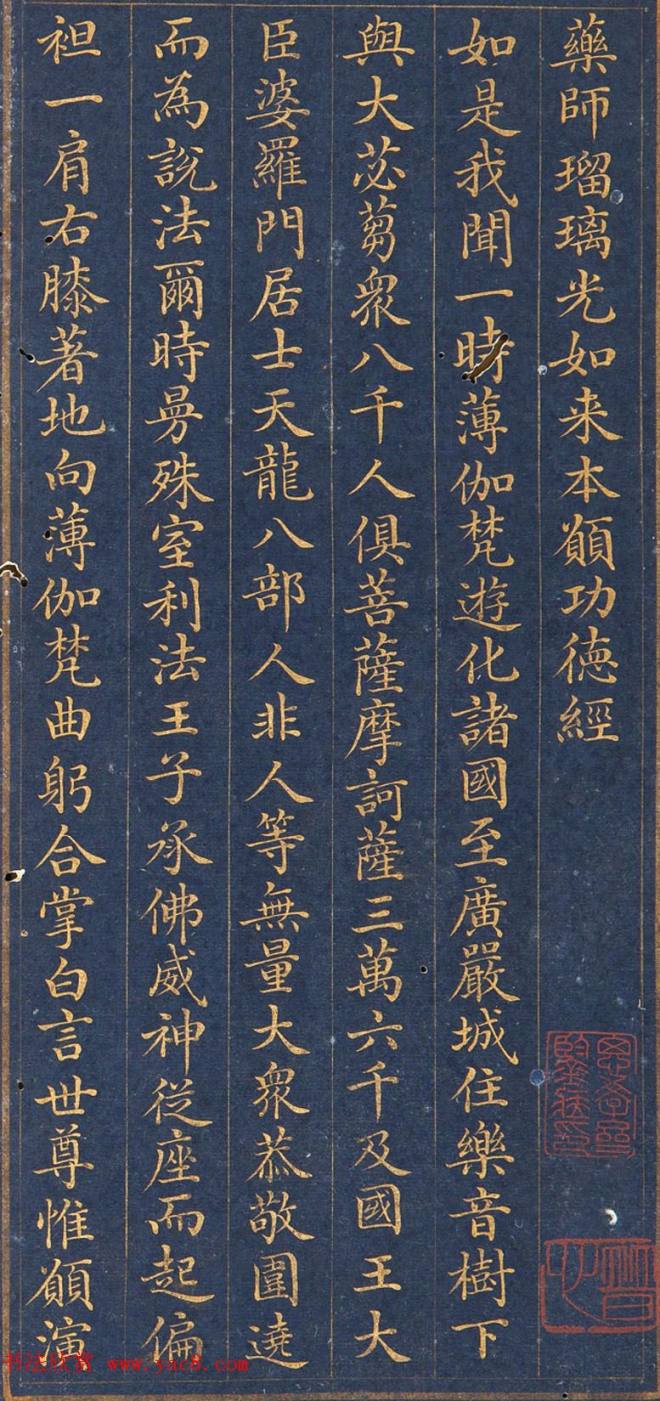 藥師瑠璃光如来本願功德經
如是我聞一時薄伽梵遊化諸國至廣嚴城住樂音樹下
與大苾蒭衆八千人俱菩薩摩訶薩三萬六千及國王大
臣婆羅門居士天龍八部人非人等無量大衆恭敬圍遶
而為說法爾時曼殊室利法王子承佛威神從座而起偏
袒一肩右膝著地向薄伽梵曲躬合掌白言世尊惟願演
书法欣赏 www.yac8.com